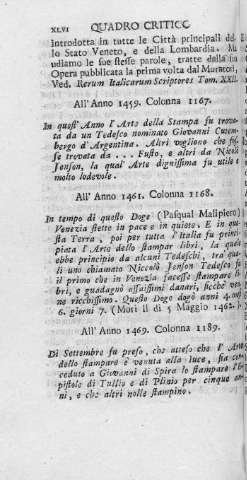 XLVI QUADRO CRITICO
Introdotta in tutte le Città principali del-
lo Stato Veneto, e della Lombardia.
udiamo le sue stesse parole, tratte dalla
Opera pubblicata la prima volta dal Muratori,
Ved. Rerum Italicarum Scriptores Tom. XXII.
All' Anno 1459. Colonna 1167.
In quest' Anno l'Arte della Stampa fu trova-
ta da un Tedesco nominato Giovanni Cutem-
bergo d'Argentina. Altri vogliono che fos-
se trovata da ... Fusto, e altri da Nicolò
Jonson, la qual Arte dignissima fu utile e
molto lodevole.
All' Anno 1461. Colonna 1168.
In tempo di questo Doge (Pasqual Malipiero)
Venezia stette in pace e in quiete. E in que-
sta Terra, poi per tutta l'Italia fu princi-
piata l'Arte dello stampar libri, la quale
ebbe principio da alcuni Tedeschi, tra qua-
li uno chiamato Niccolò Jonson Tedesco fu
il primo che in Venezia facesse stampare li-
bri, e guadagnò assaissimi danari, sicchè ven-
ne ricchissimo. Questo Doge dogò anni 4.
6. giorni 7. (Morì il dì 5 Maggio 1462.)
All' Anno 1469. Colonna 1189.
Di Settembre fu preso, che atteso che l'Arte
dello stampare è venuta alla luce, sia con-
ceduto a Giovanni di Spira lo stampare l'E-
pistole di Tullio e di Plinio per cinque an-
ni, e che altri nolle stampino.